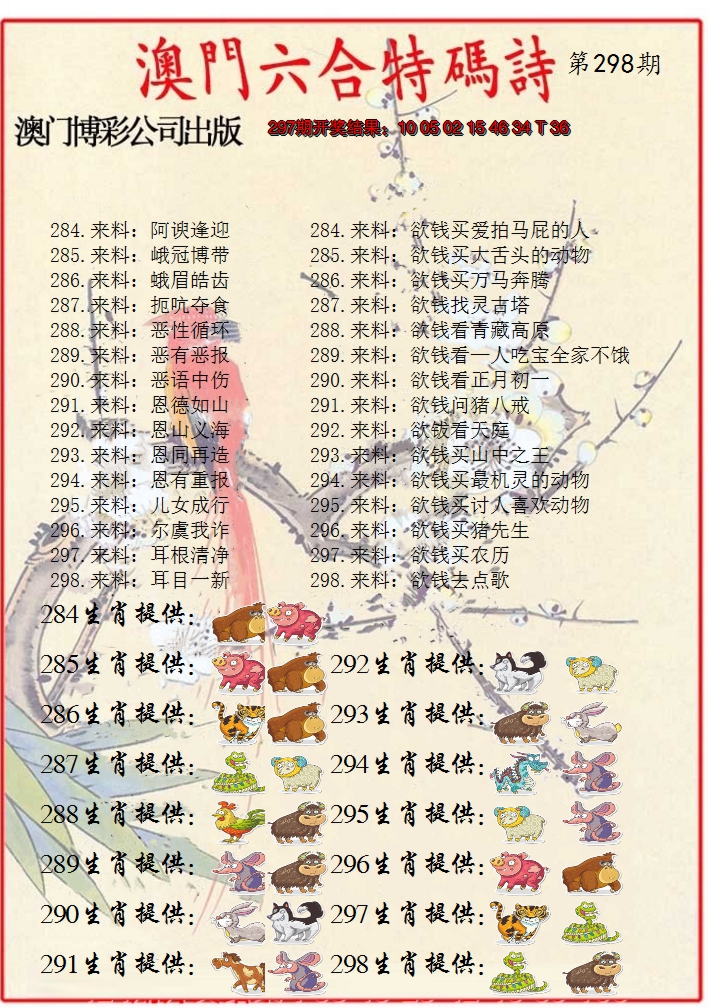 澳門六合特碼詩 第298期
澳门博彩公司出版 297期开奖结果：10 05 02 15 46 34 T 36
284.来料：阿谀逢迎 284.来料：欲钱买爱拍马屁的人
285.来料：峨冠博带 285.来料：欲钱买大舌头的动物
286.来料：蛾眉皓齿 286.来料：欲钱买万马奔腾
287.来料：扼吭夺食 287.来料：欲钱找灵古塔
288.来料：恶性循环 288.来料：欲钱看青藏高原
289.来料：恶有恶报 289.来料：欲钱看一人吃宝全家不饿
290.来料：恶语中伤 290.来料：欲钱看正月初一
291.来料：恩德如山 291.来料：欲钱问猪八戒
292.来料：恩山义海 292.来料：欲钱看天庭
293.来料：恩同再造 293.来料：欲钱买山中之王
294.来料：恩有重报 294.来料：欲钱买最机灵的动物
295.来料：儿女成行 295.来料：欲钱买讨人喜欢动物
296.来料：尔虞我诈 296.来料：欲钱买猪先生
297.来料：耳根清净 297.来料：欲钱买农历
298.来料：耳目一新 298.来料：欲钱去点歌
284生肖提供：
285生肖提供： 292生肖提供：
286生肖提供： 293生肖提供：
287生肖提供： 294生肖提供：
288生肖提供： 295生肖提供：
289生肖提供： 296生肖提供：
290生肖提供： 297生肖提供：
291生肖提供： 298生肖提供：